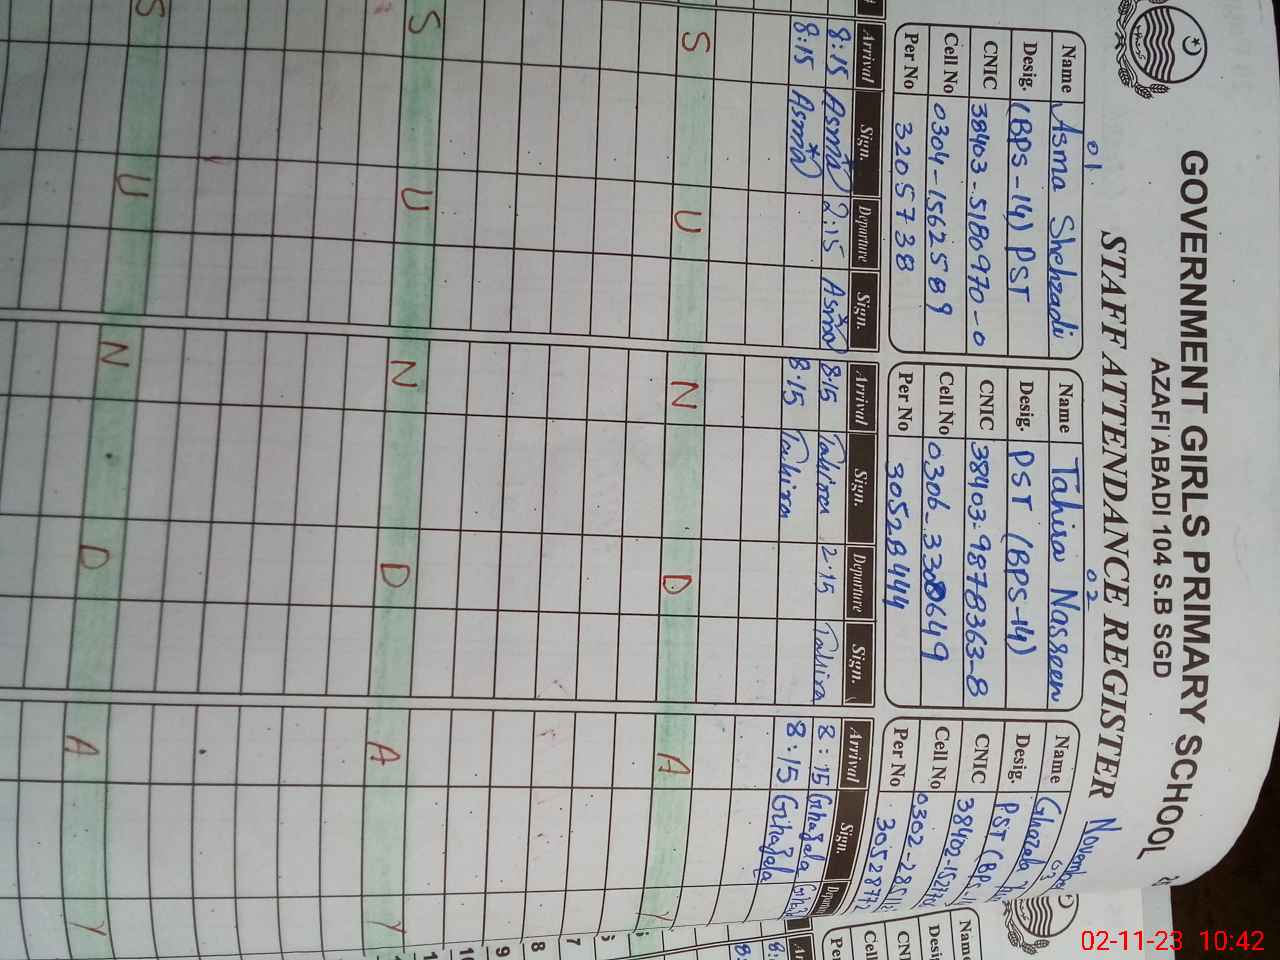 GOVERNMENT GIRLS PRIMARY SCHOOL
AZAFI ABADI 104 S.B SGD
STAFF ATTENDANCE REGISTER November
01
Name Asma Shehzadi
Desig. (BPS-14) PST
CNIC 38403-5180970-0
Cell No 0304-1562589
Per No 3205738
02
Name Tahira Nasreen
Desig. PST (BPS-14)
CNIC 38403-9878363-8
Cell No 0306-3308649
Per No 3052B444
03
Name Ghazala
Desig. PST (BPS-1
CNIC 38402-152
Cell No 0302-285
Per No 3052877
Name
Desig
CN
Cell
Per
Arrival Sign. Departure Sign. Arrival Sign. Departure Sign. Arrival Sign. Departu Ar
8:15 Asma 2:15 Asma 8:15 Tahira 2:15 Tahira 8:15 Ghazala
8:15 Asma 8:15 Tahira 8:15 Ghazala
S U N D A Y
6
7
8
9
10
S U N D A Y
S U N D A Y
02-11-23 10:42